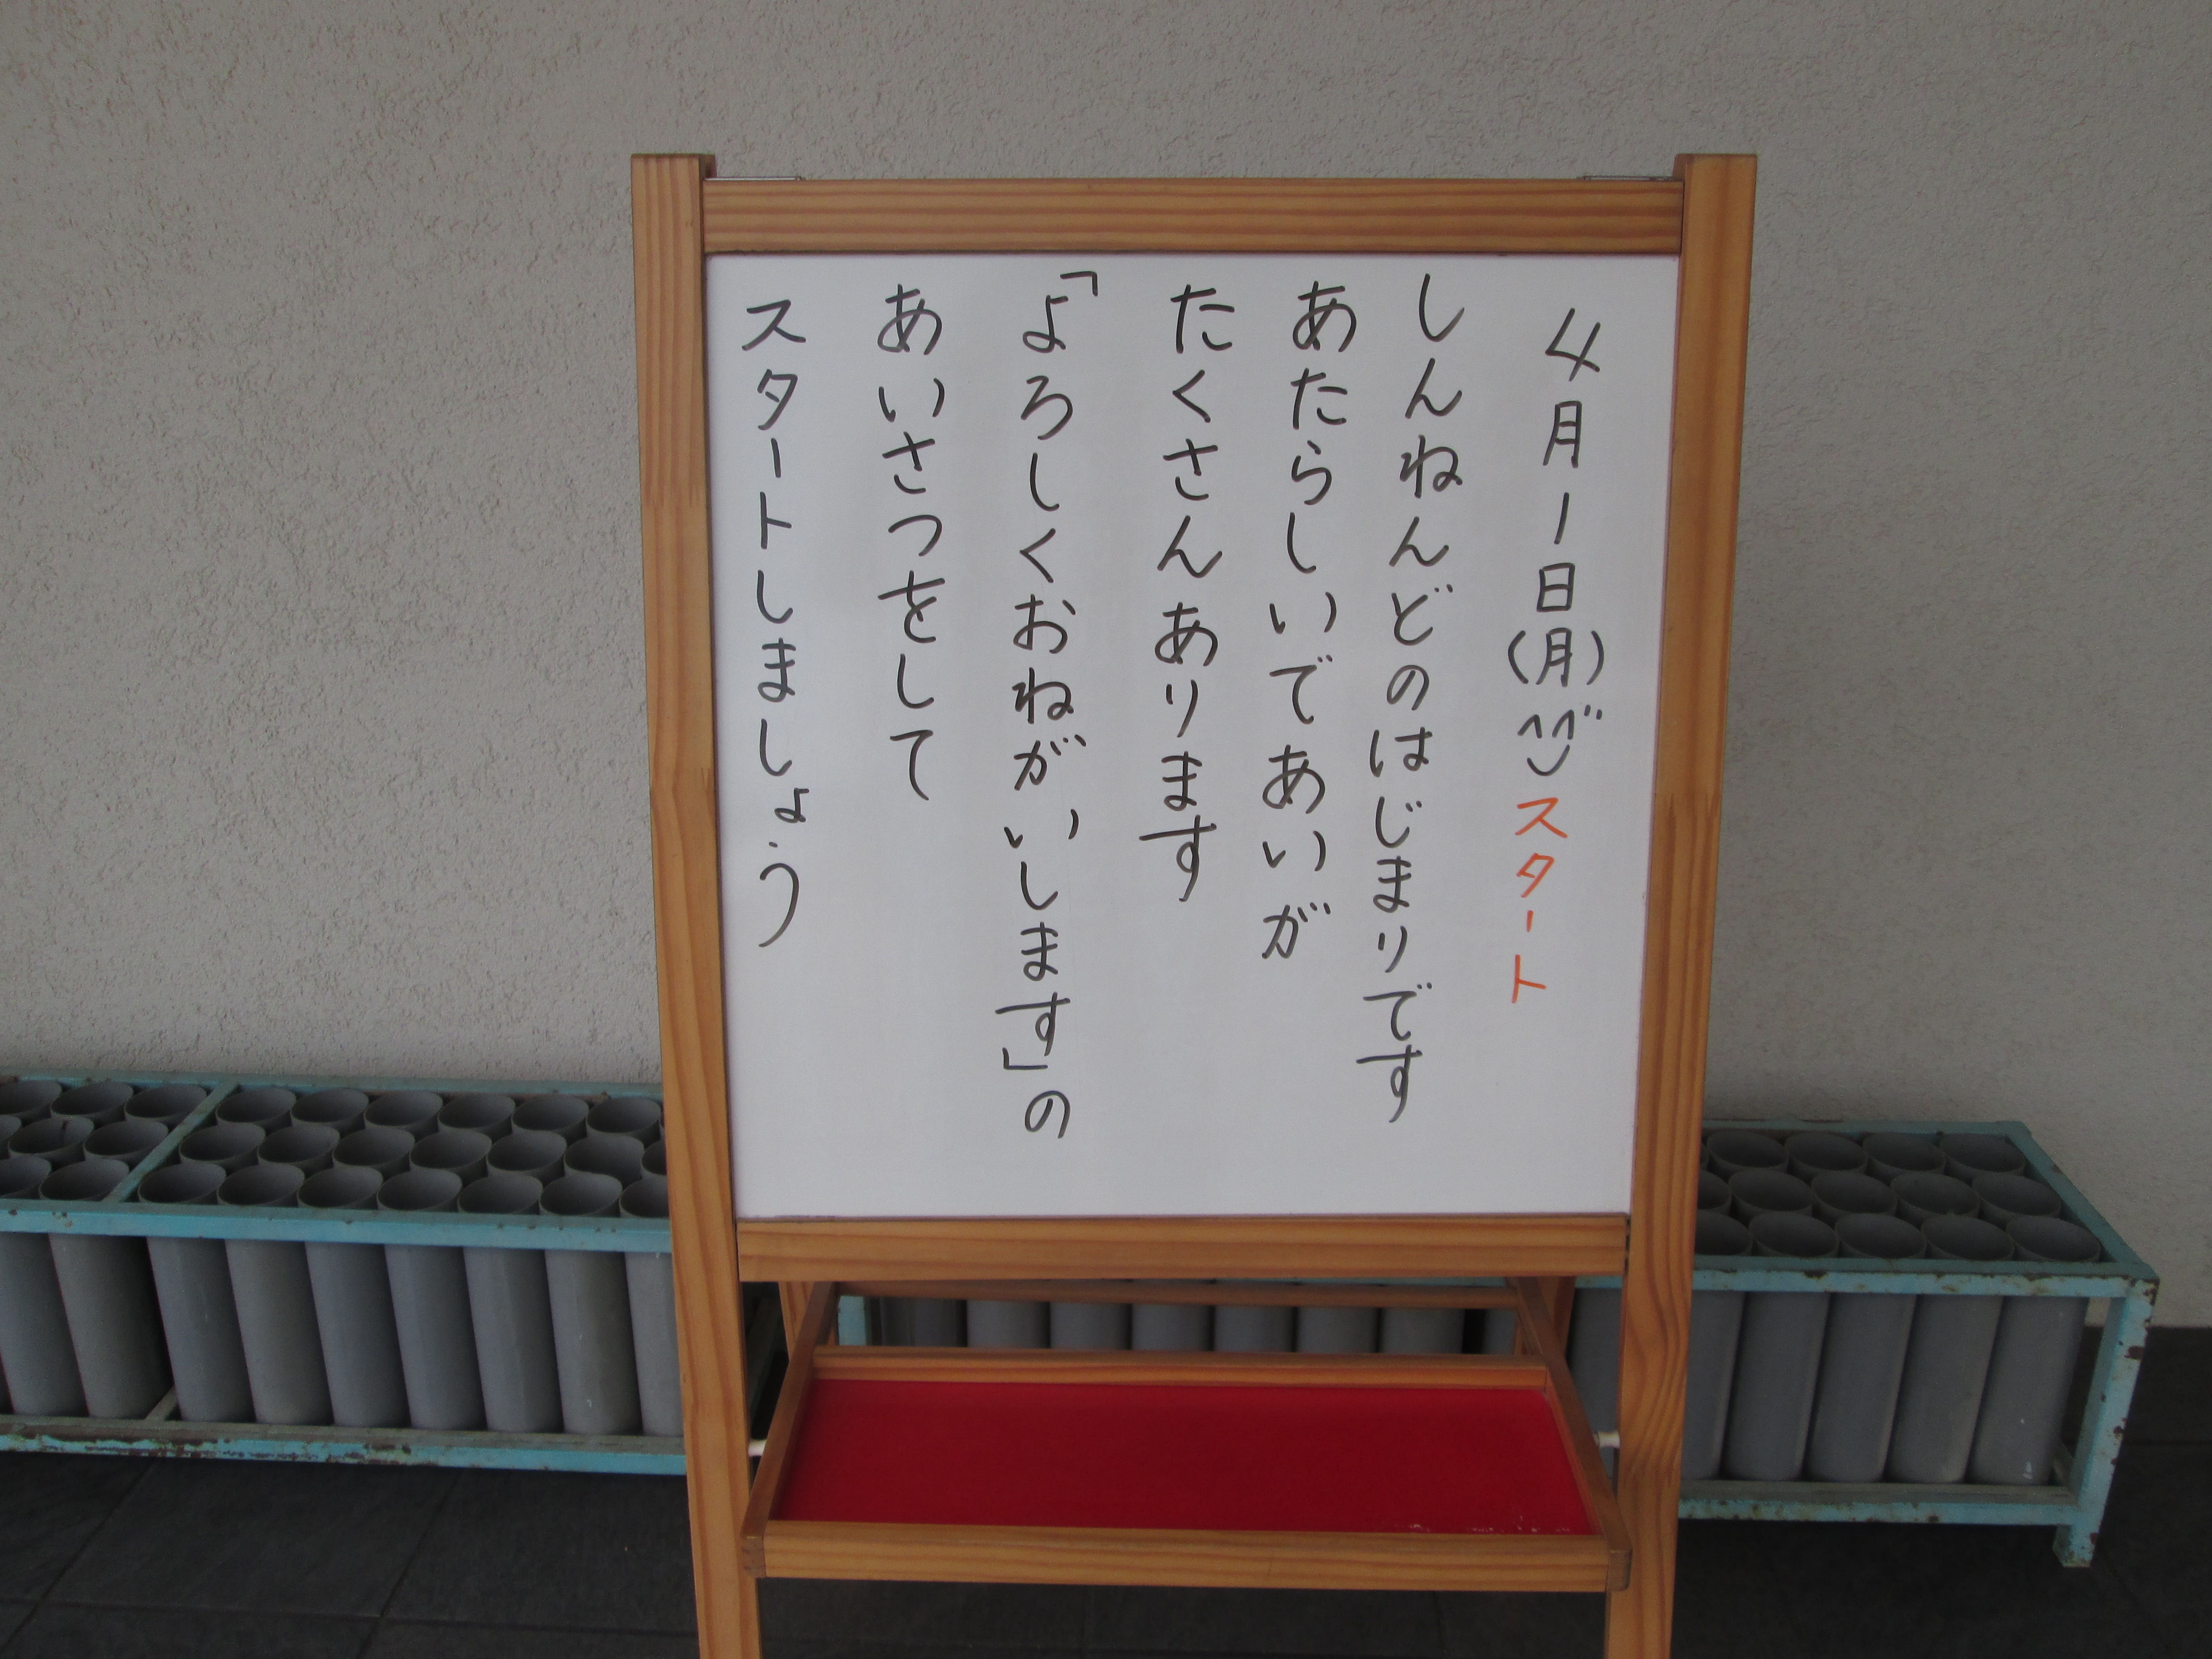 4月1日(月)^^スタート
しんねんどのはじまりです
あたらしいであいが
たくさんあります
「よろしくおねがいします」の
あいさつをして
スタートしましょう